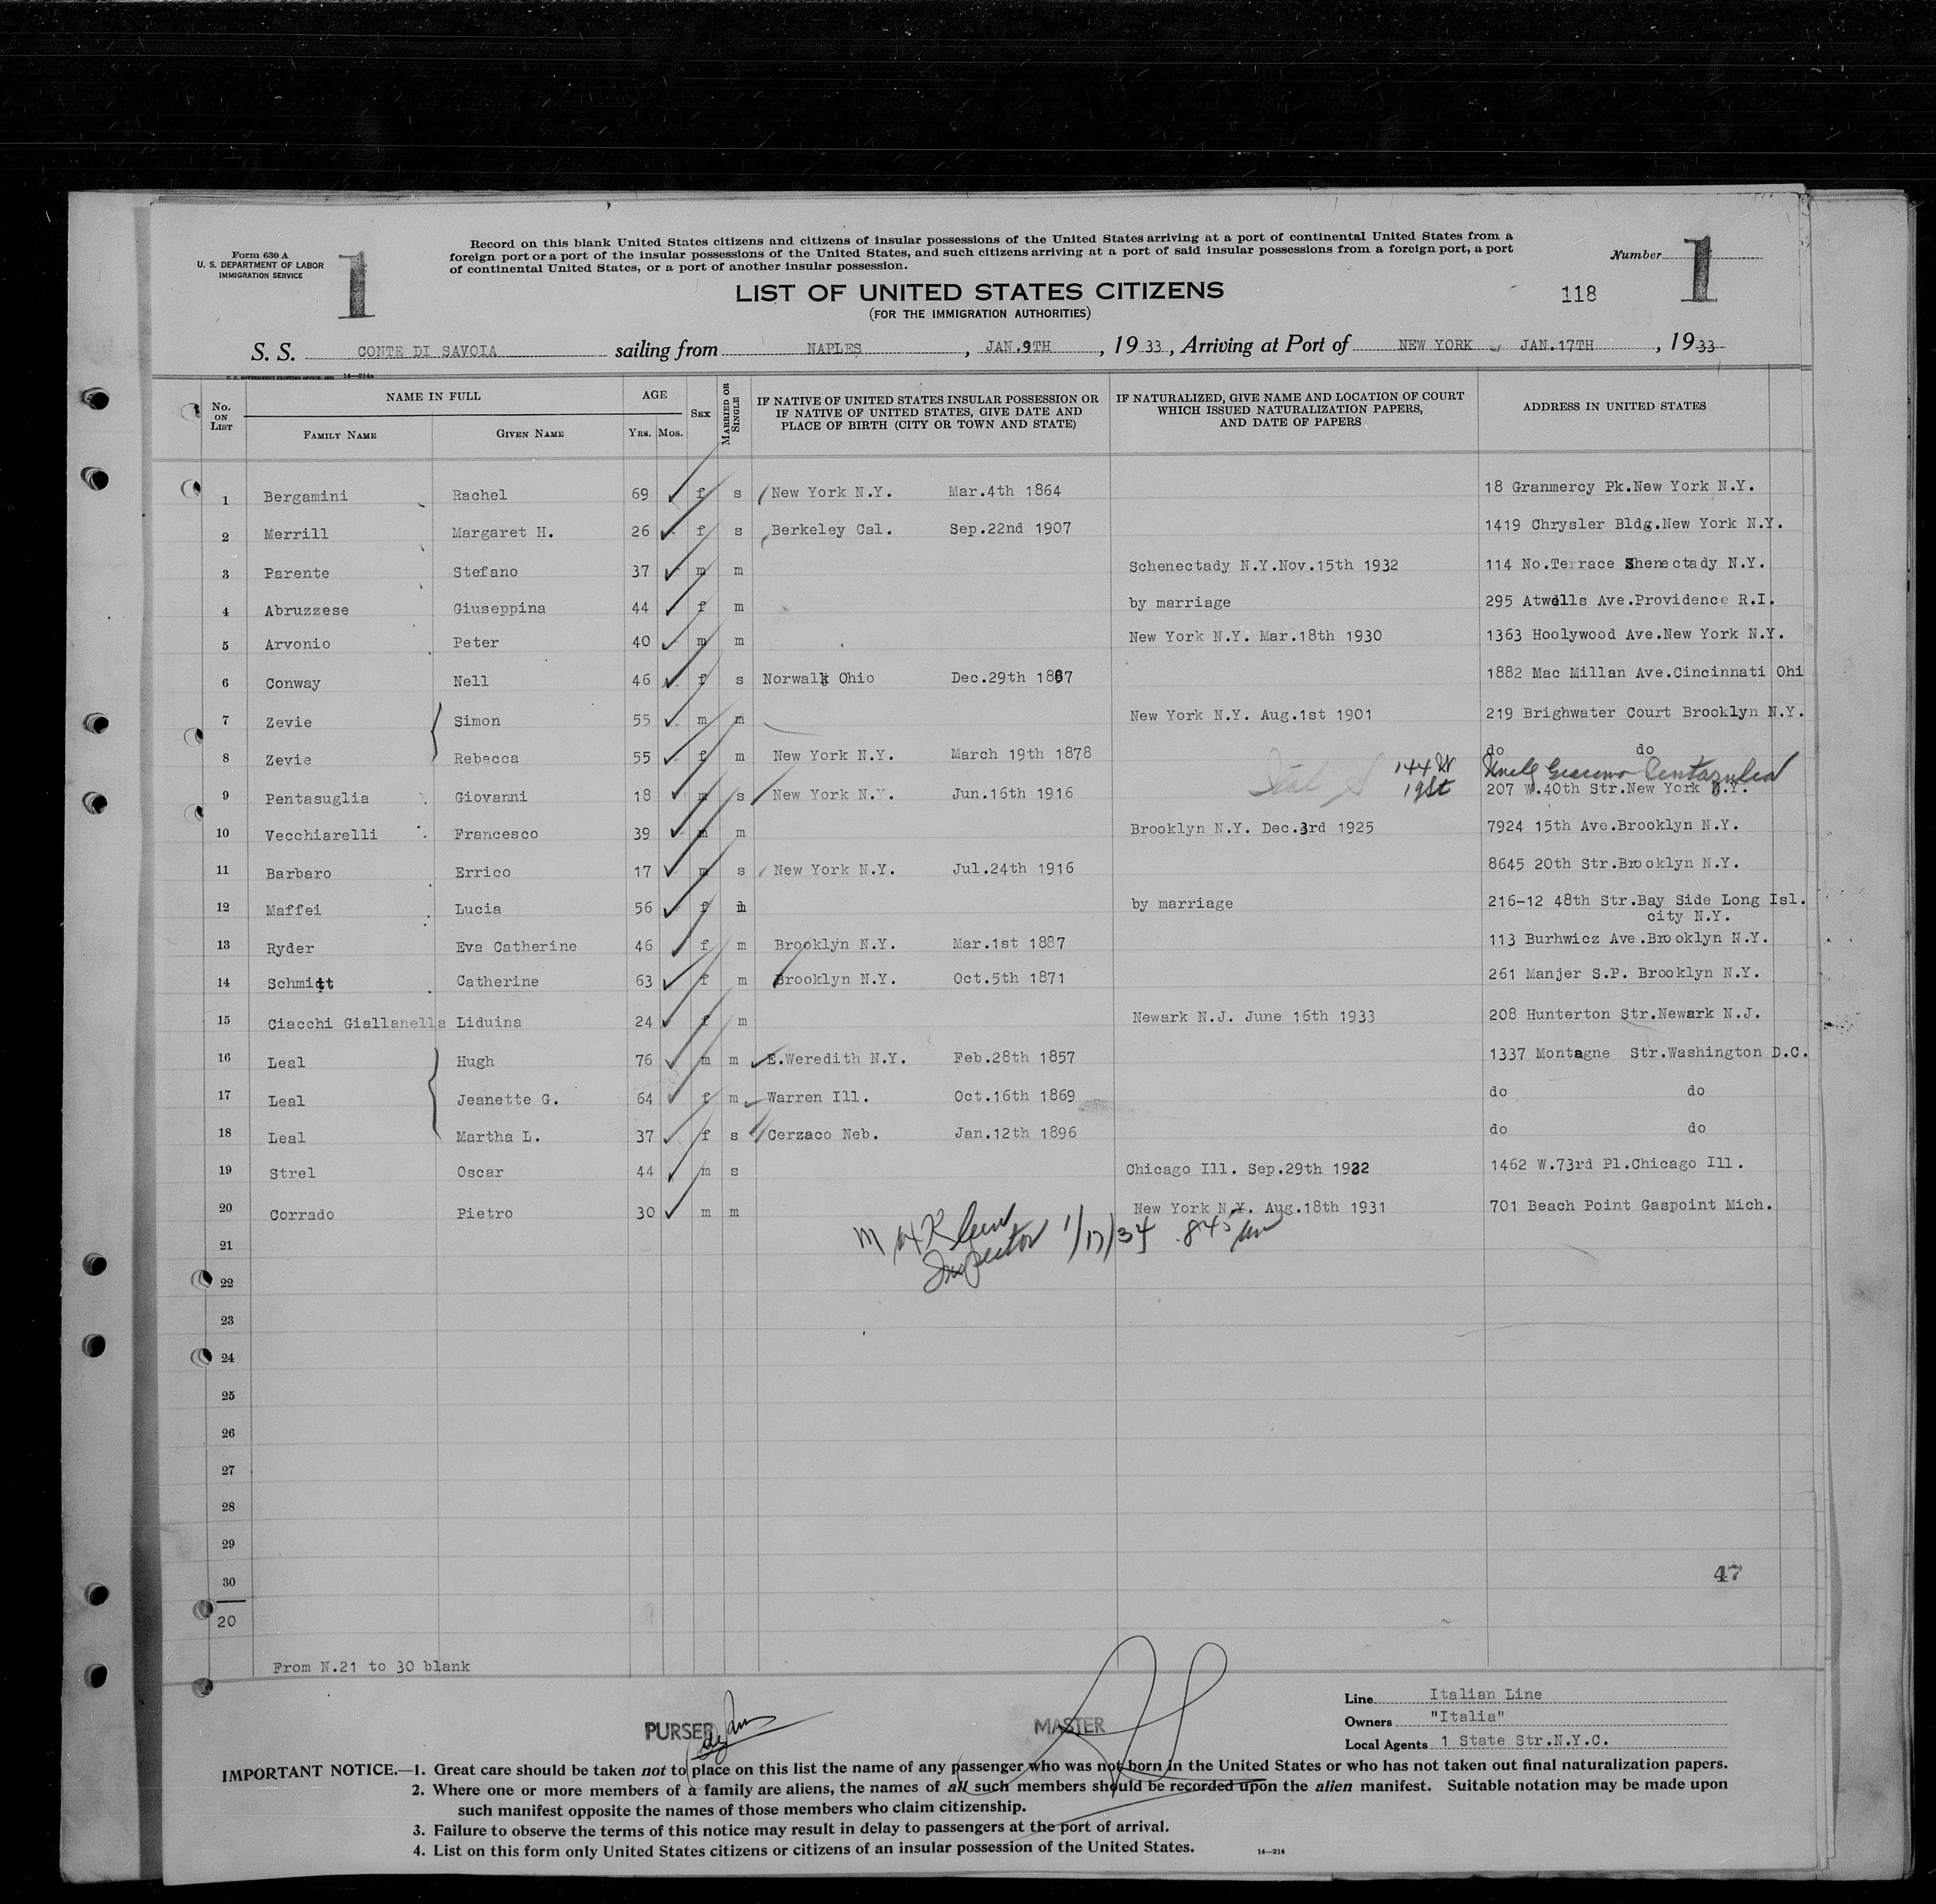 Form 630 A
U. S. DEPARTMENT OF LABOR
IMMIGRATION SERVICE
1
Record on this blank United States citizens and citizens of insular possessions of the United States arriving at a port of continental United States from a
foreign port or a port of the insular possessions of the United States, and such citizens arriving at a port of said insular possessions from a foreign port, a port
of continental United States, or a port of another insular possession.
Number 1
LIST OF UNITED STATES CITIZENS
(FOR THE IMMIGRATION AUTHORITIES)
118
S. S. CONTE DI SAVOIA sailing from NAPLES, JAN.9TH, 1933, Arriving at Port of NEW YORK JAN.17TH, 1933
14—214a
No. ON LIST NAME IN FULL FAMILY NAME GIVEN NAME AGE YRS. MOS. SEX MARRIED OR SINGLE IF NATIVE OF UNITED STATES INSULAR POSSESSION OR IF NATIVE OF UNITED STATES, GIVE DATE AND PLACE OF BIRTH (CITY OR TOWN AND STATE) IF NATURALIZED, GIVE NAME AND LOCATION OF COURT WHICH ISSUED NATURALIZATION PAPERS, AND DATE OF PAPERS ADDRESS IN UNITED STATES
1 Bergamini Rachel 69 f s New York N.Y. Mar.4th 1864 18 Granmercy Pk.New York N.Y.
2 Merrill Margaret H. 26 f s Berkeley Cal. Sep.22nd 1907 1419 Chrysler Bldg.New York N.Y.
3 Parente Stefano 37 m m Schenectady N.Y.Nov.15th 1932 114 No.Terrace Shenectady N.Y.
4 Abruzzese Giuseppina 44 f m by marriage 295 Atwells Ave.Providence R.I.
5 Arvonio Peter 40 m m New York N.Y. Mar.18th 1930 1363 Hoolywood Ave.New York N.Y.
6 Conway Nell 46 f s Norwalk Ohio Dec.29th 1887 1882 Mac Millan Ave.Cincinnati Ohi
7 Zevie Simon 55 m m New York N.Y. Aug.1st 1901 219 Brighwater Court Brooklyn N.Y.
8 Zevie Rebecca 55 f m New York N.Y. March 19th 1878 do do
144 W 19St Uncle Giacomo Pentasuglia
9 Pentasuglia Giovanni 18 m s New York N.Y. Jun.16th 1916 207 W.40th Str.New York N.Y.
10 Vecchiarelli Francesco 39 m m Brooklyn N.Y. Dec.3rd 1925 7924 15th Ave.Brooklyn N.Y.
11 Barbaro Errico 17 m s New York N.Y. Jul.24th 1916 8645 20th Str.Brooklyn N.Y.
12 Maffei Lucia 56 f m by marriage 216-12 48th Str.Bay Side Long Isl.
city N.Y.
13 Ryder Eva Catherine 46 f m Brooklyn N.Y. Mar.1st 1887 113 Burhwicz Ave.Brooklyn N.Y.
14 Schmitt Catherine 63 f m Brooklyn N.Y. Oct.5th 1871 261 Manjer S.P. Brooklyn N.Y.
15 Ciacchi Giallanella Liduina 24 f m Newark N.J. June 16th 1933 208 Hunterton Str.Newark N.J.
16 Leal Hugh 76 m m E.Weredith N.Y. Feb.28th 1857 1337 Montagne Str.Washington D.C.
17 Leal Jeanette G. 64 f m Warren Ill. Oct.16th 1869 do do
18 Leal Martha L. 37 f s Cerzaco Neb. Jan.12th 1896 do do
19 Strel Oscar 44 m s Chicago Ill. Sep.29th 1922 1462 W.73rd Pl.Chicago Ill.
20 Corrado Pietro 30 m m New York N.Y. Aug.18th 1931 701 Beach Point Gaspoint Mich.
Inspector 1/17/34 845 am
21
22
23
24
25
26
27
28
29
30
47
20
From N.21 to 30 blank
Line Italian Line
PURSER MASTER
Owners "Italia"
Local Agents 1 State Str.N.Y.C.
IMPORTANT NOTICE.—1. Great care should be taken not to place on this list the name of any passenger who was not born in the United States or who has not taken out final naturalization papers.
2. Where one or more members of a family are aliens, the names of all such members should be recorded upon the alien manifest. Suitable notation may be made upon
such manifest opposite the names of those members who claim citizenship.
3. Failure to observe the terms of this notice may result in delay to passengers at the port of arrival.
4. List on this form only United States citizens or citizens of an insular possession of the United States.
14—214